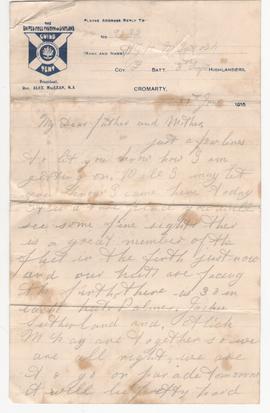 PLEASE ADDRESS REPLY TO—
THE
UNITED FREE CHURCH OF SCOTLAND
GUIDS
TENT
President,
Rev. ALEX. MACLEAN, M.A.
(RANK AND NAME)
COY. BATT. 3rd HIGHLANDERS,
CROMARTY.
1915
My Dear Father and Mother
just a few lines
to let you know how I am
getting on. Well I may let
you know I came here today
see some fine sights there
is a great member of the
fleet in the firth just now
and our huts are facing
the firth, there is 30 in
each hut. Palmer,
Sutherland and,
McKay are together so we
are all right, we are
to go on parade tomorrow
it will be pretty hard